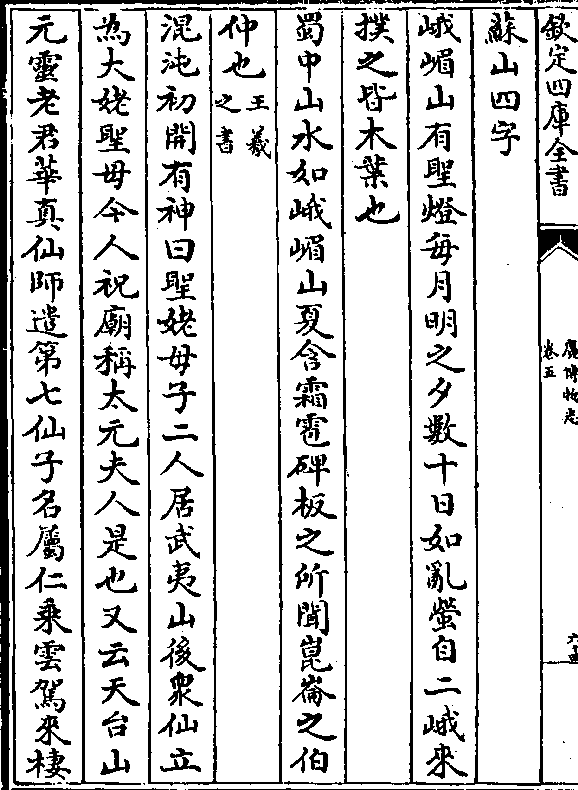 欽定四庫全書
廣博物志
卷五
六十五
蘇山四字
峨嵋山有聖燈毎月明之夕數十日如亂螢自二峨來
撲之皆木葉也
蜀中山水如峨嵋山夏含霜雹碑板之所聞崑崙之伯
仲也王羲
之書
混沌初開有神曰聖姥母子二人居武夷山後衆仙立
為大姥聖母今人祝廟稱太元夫人是也又云天台山
元靈老君華真仙師遣第七仙子名屬仁乘雲駕來棲